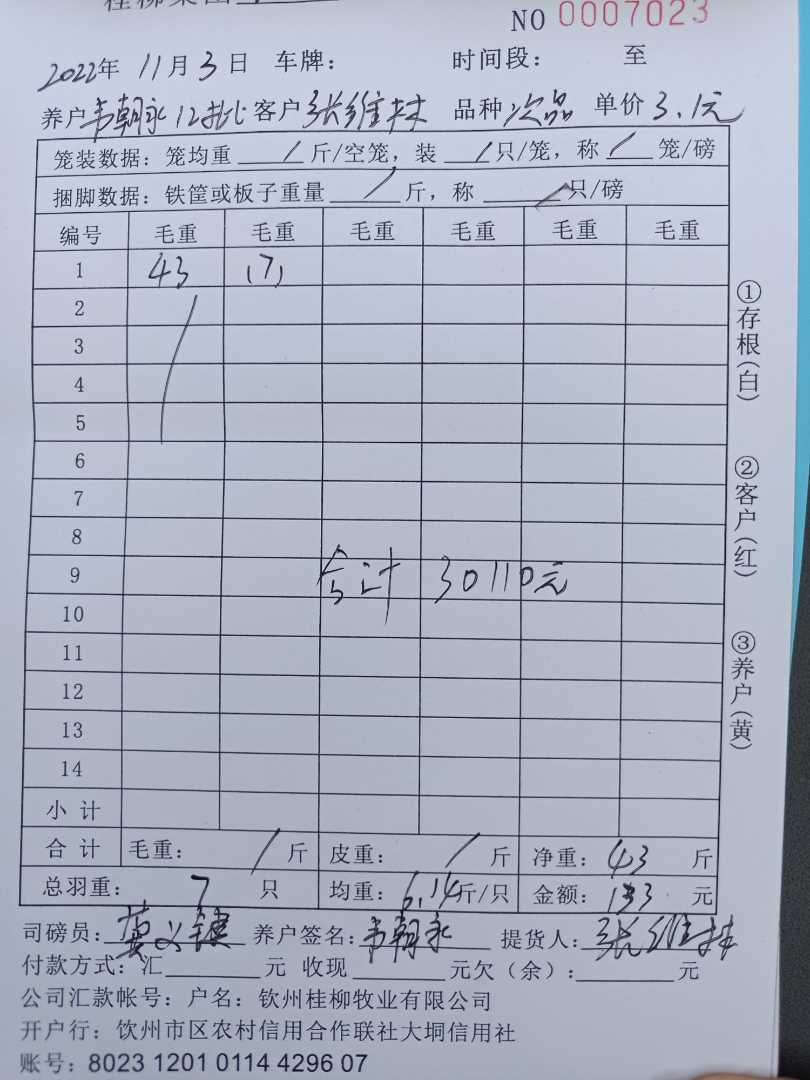 NO 0007023
2022年 11月 3日 车牌： 时间段： 至
养户韦朝永12批 客户张维林 品种次品 单价3.1元
笼装数据：笼均重 / 斤/空笼，装 / 只/笼，称 / 笼/磅
捆脚数据：铁筐或板子重量 / 斤，称 / 只/磅
编号 毛重 毛重 毛重 毛重 毛重 毛重
1 43 (7)
2
3
4
5
6
7
8
9 合计 30110元
10
11
12
13
14
小计
合计 毛重： / 斤 皮重： / 斤 净重：43 斤
总羽重： 7 只 均重：6.14斤/只 金额：133 元
司磅员： 养户签名：韦朝永 提货人：张维林
付款方式：汇 元 收现 元欠（余）： 元
公司汇款帐号：户名：钦州桂柳牧业有限公司
开户行：饮州市区农村信用合作联社大垌信用社
账号：8023 1201 0114 4296 07
①存根(白)
②客户(红)
③养户(黄)